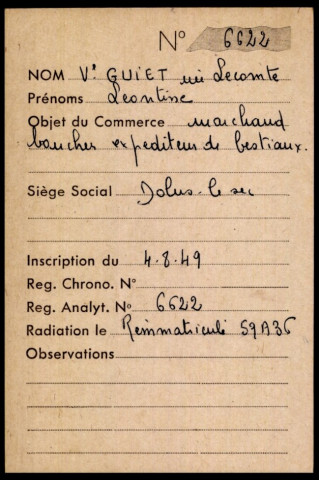 N° 6622
NOM Vᵉ GUIET née Lecomte
Prénoms Leontine
Objet du Commerce marchand
boucher expediteur de bestiaux.
Siège Social Dolus-le sec
Inscription du 4.8.49
Reg. Chrono. N°
Reg. Analyt. N° 6622
Radiation le Reimmatriculé 59A36
Observations